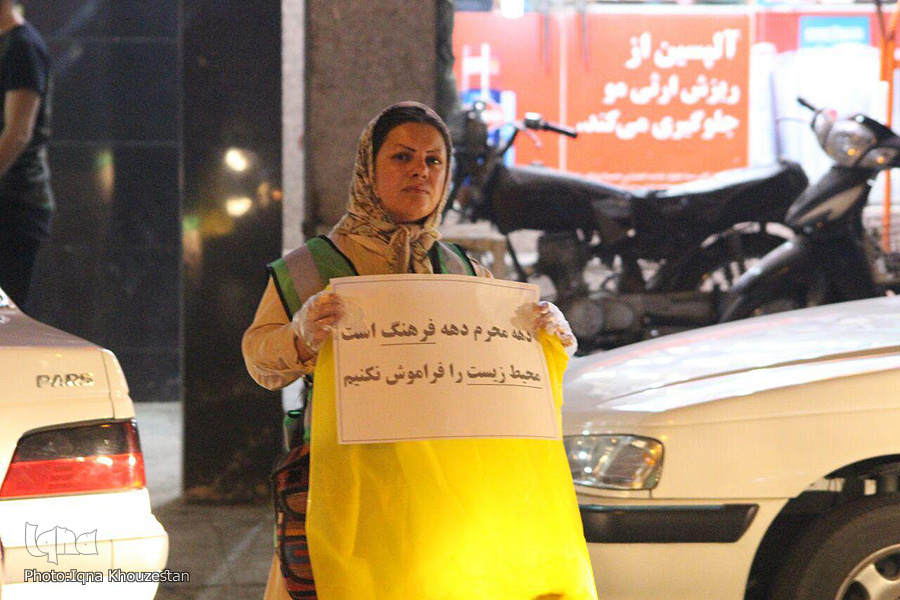 آلپسین از
ریزش ارثی مو
جلوگیری می‌کند.
دهه محرم دهه فرهنگ است
محیط زیست را فراموش نکنیم
PARS
Iqna
Photo:Iqna Khouzestan